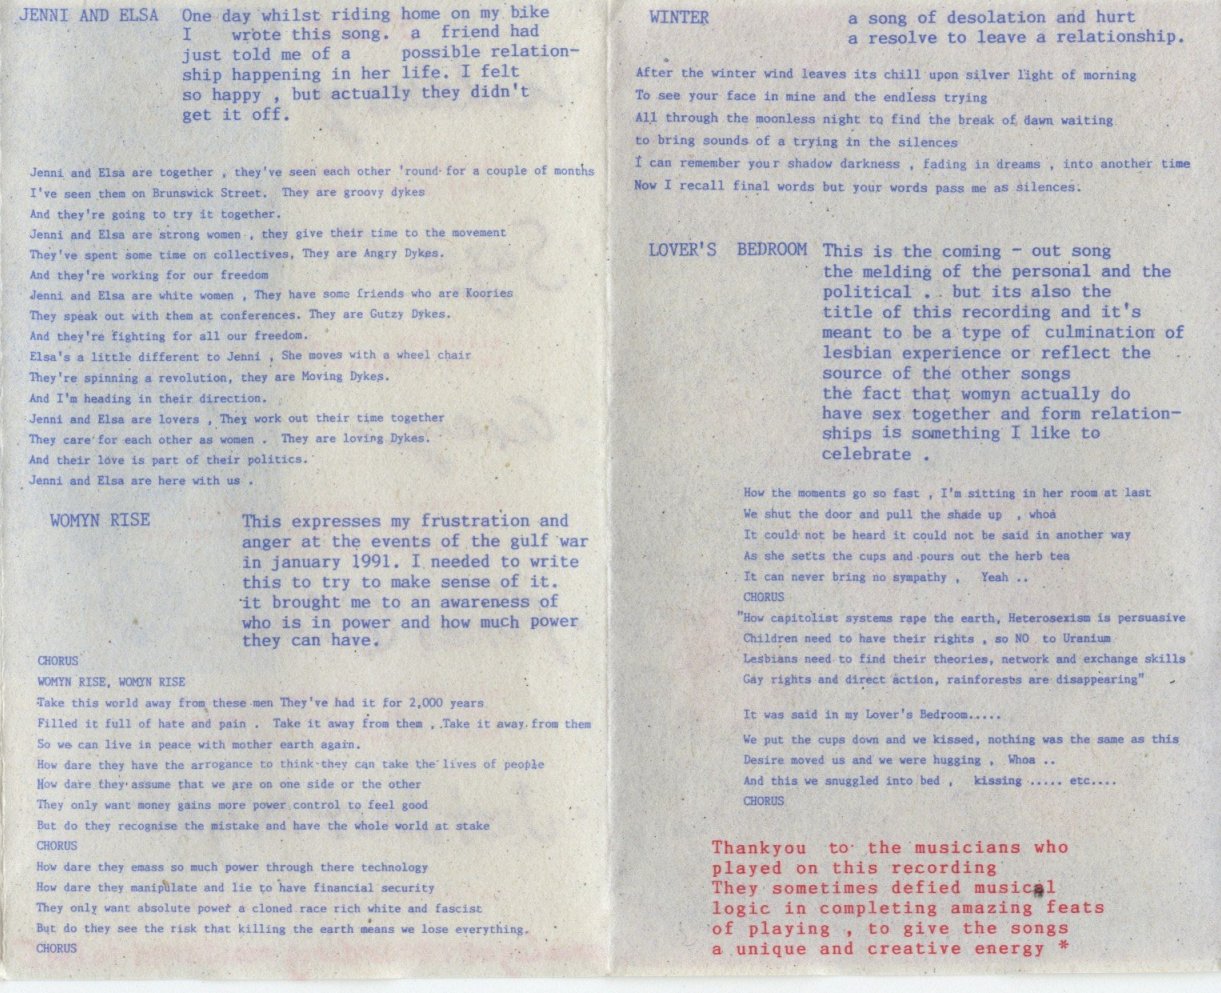 JENNI AND ELSA
One day whilst riding home on my bike
I wrote this song. a friend had
just told me of a possible relation-
ship happening in her life. I felt
so happy , but actually they didn't
get it off.
Jenni and Elsa are together , they've seen each other 'round for a couple of months
I've seen them on Brunswick Street. They are groovy dykes
And they're going to try it together.
Jenni and Elsa are strong women , they give their time to the movement
They've spent some time on collectives, They are Angry Dykes.
And they're working for our freedom
Jenni and Elsa are white women , They have some friends who are Koories
They speak out with them at conferences. They are Gutzy Dykes.
And they're fighting for all our freedom.
Elsa's a little different to Jenni , She moves with a wheel chair
They're spinning a revolution, they are Moving Dykes.
And I'm heading in their direction.
Jenni and Elsa are lovers , They work out their time together
They care for each other as women . They are loving Dykes.
And their love is part of their politics.
Jenni and Elsa are here with us .
WOMYN RISE
This expresses my frustration and
anger at the events of the gulf war
in january 1991. I needed to write
this to try to make sense of it.
it brought me to an awareness of
who is in power and how much power
they can have.
CHORUS
WOMYN RISE, WOMYN RISE
Take this world away from these men They've had it for 2,000 years
Filled it full of hate and pain . Take it away from them , .Take it away from them
So we can live in peace with mother earth again.
How dare they have the arrogance to think they can take the lives of people
How dare they assume that we are on one side or the other
They only want money gains more power control to feel good
But do they recognise the mistake and have the whole world at stake
CHORUS
How dare they emass so much power through there technology
How dare they manipulate and lie to have financial security
They only want absolute power a cloned race rich white and fascist
But do they see the risk that killing the earth means we lose everything.
CHORUS
WINTER
a song of desolation and hurt
a resolve to leave a relationship.
After the winter wind leaves its chill upon silver light of morning
To see your face in mine and the endless trying
All through the moonless night to find the break of dawn waiting
to bring sounds of a trying in the silences
I can remember your shadow darkness , fading in dreams , into another time
Now I recall final words but your words pass me as silences.
LOVER'S BEDROOM
This is the coming - out song
the melding of the personal and the
political . but its also the
title of this recording and it's
meant to be a type of culmination of
lesbian experience or reflect the
source of the other songs
the fact that womyn actually do
have sex together and form relation-
ships is something I like to
celebrate .
How the moments go so fast , I'm sitting in her room at last
We shut the door and pull the shade up , whoa
It could not be heard it could not be said in another way
As she setts the cups and pours out the herb tea
It can never bring no sympathy , Yeah ..
CHORUS
"How capitolist systems rape the earth, Heterosexism is persuasive
Children need to have their rights , so NO to Uranium
Lesbians need to find their theories, network and exchange skills
Gay rights and direct action, rainforests are disappearing"
It was said in my Lover's Bedroom.....
We put the cups down and we kissed, nothing was the same as this
Desire moved us and we were hugging , Whoa ..
And this we snuggled into bed , kissing ..... etc....
CHORUS
Thankyou to the musicians who
played on this recording
They sometimes defied musical
logic in completing amazing feats
of playing , to give the songs
a unique and creative energy *